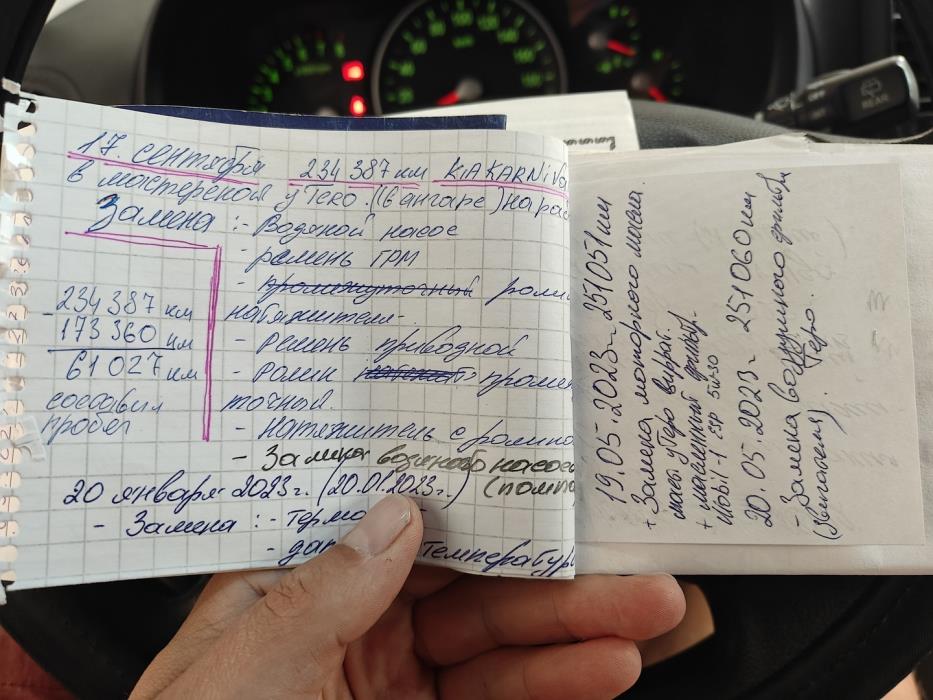 17. сентября 234 387 км KIA KARNiVA
в мастерской у Теко. (6 ангаре) на рас
Замена :- Водяной насос
- ремень ГРМ
- промежуточный роли
натяжители-
- Ремень приводной
- Ролик промеж
точный.
- натяжитель с ролико
- Замена водяного насоса
(помпа
- 234 387 км
173 360 км
61 027 км
составил
пробег
20 января 2023г. (20.01.2023г.)
- Замена : - термо
- дат температуры
19.05.2023 - 251051 км
+ Замена моторного масла.
+ масляный фильтр.
Mobil-1 ESP 5w-30
20.05.2023 - 251060 км
- Замена воздушного фильтр
REAR